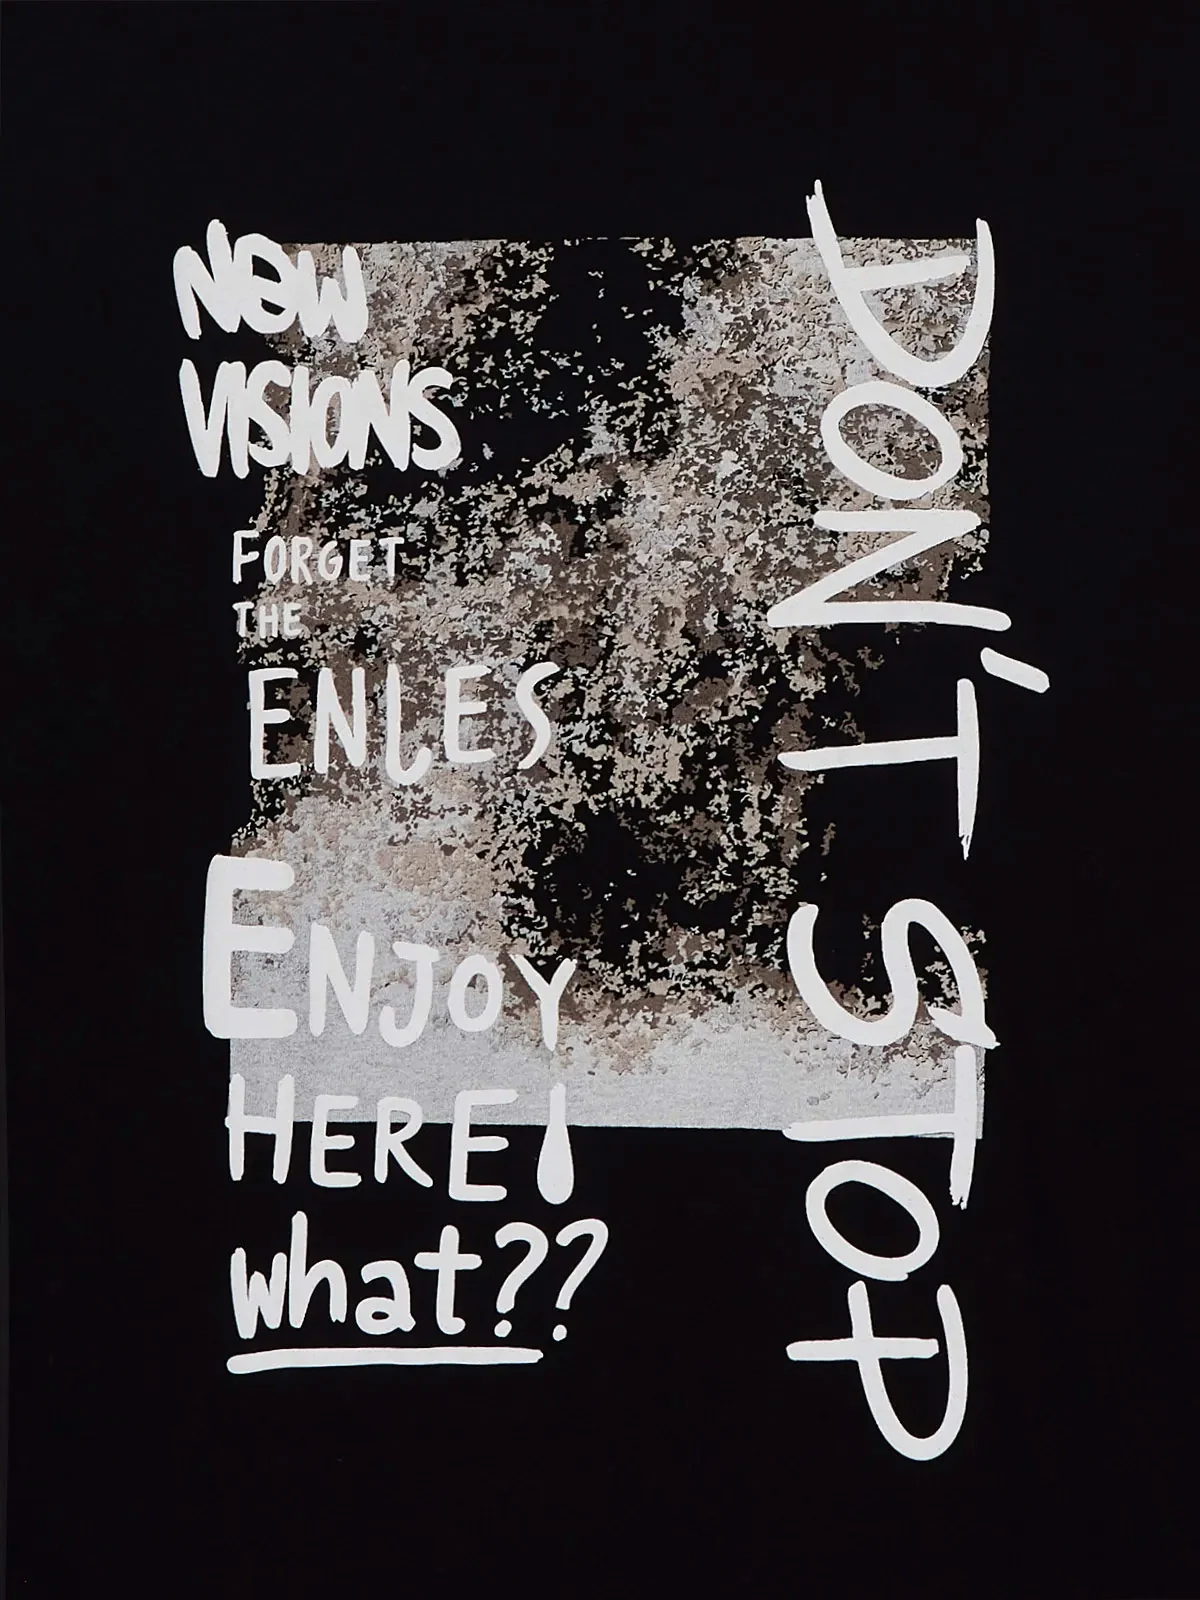 NEW
VISIONS
FORGET
THE
ENLES
ENJOY
HERE!
what??
DON'T STOP